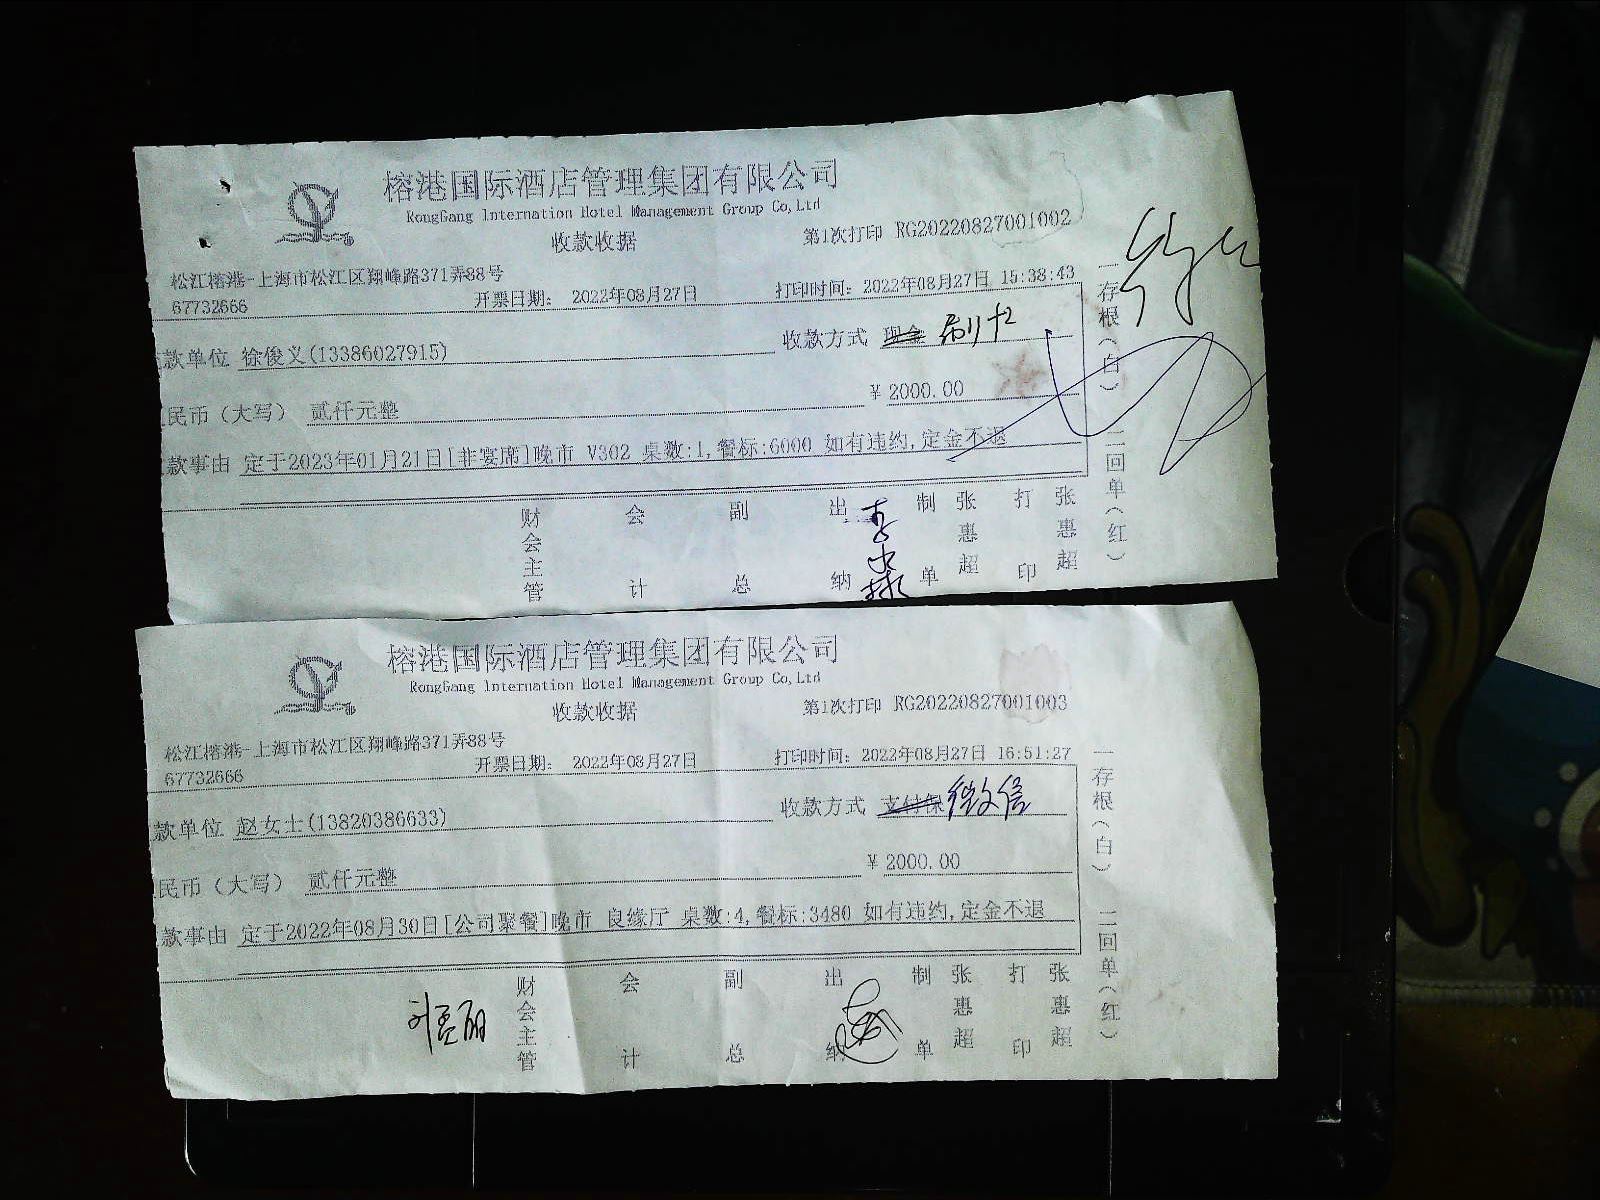 榕港国际酒店管理集团有限公司
RongGang Internation Hotel Management Group Co,Ltd
收款收据
第1次打印 RG20220827001002
松江榕港-上海市松江区翔峰路371弄88号
67732666
开票日期： 2022年08月27日
打印时间：2022年08月27日 15:38:43
款单位 徐俊义(13386027915)
收款方式 现金 刷卡
民币（大写） 贰仟元整
￥2000.00
款事由 定于2023年01月21日[非宴席]晚市 V302 桌数:1,餐标:6000 如有违约,定金不退
财会主管 会计 副总 出纳 制单 张惠超 打印 张惠超
一存根（白） 二回单（红）
榕港国际酒店管理集团有限公司
RongGang Internation Hotel Management Group Co,Ltd
收款收据
第1次打印 RG20220827001003
松江榕港-上海市松江区翔峰路371弄88号
67732666
开票日期： 2022年08月27日
打印时间：2022年08月27日 16:51:27
款单位 赵女士(13820386633)
收款方式 支付保 微信
民币（大写） 贰仟元整
￥2000.00
款事由 定于2022年08月30日[公司聚餐]晚市 良缘厅 桌数:4,餐标:3480 如有违约,定金不退
财会主管 会计 副总 出纳 制单 张惠超 打印 张惠超
一存根（白） 二回单（红）